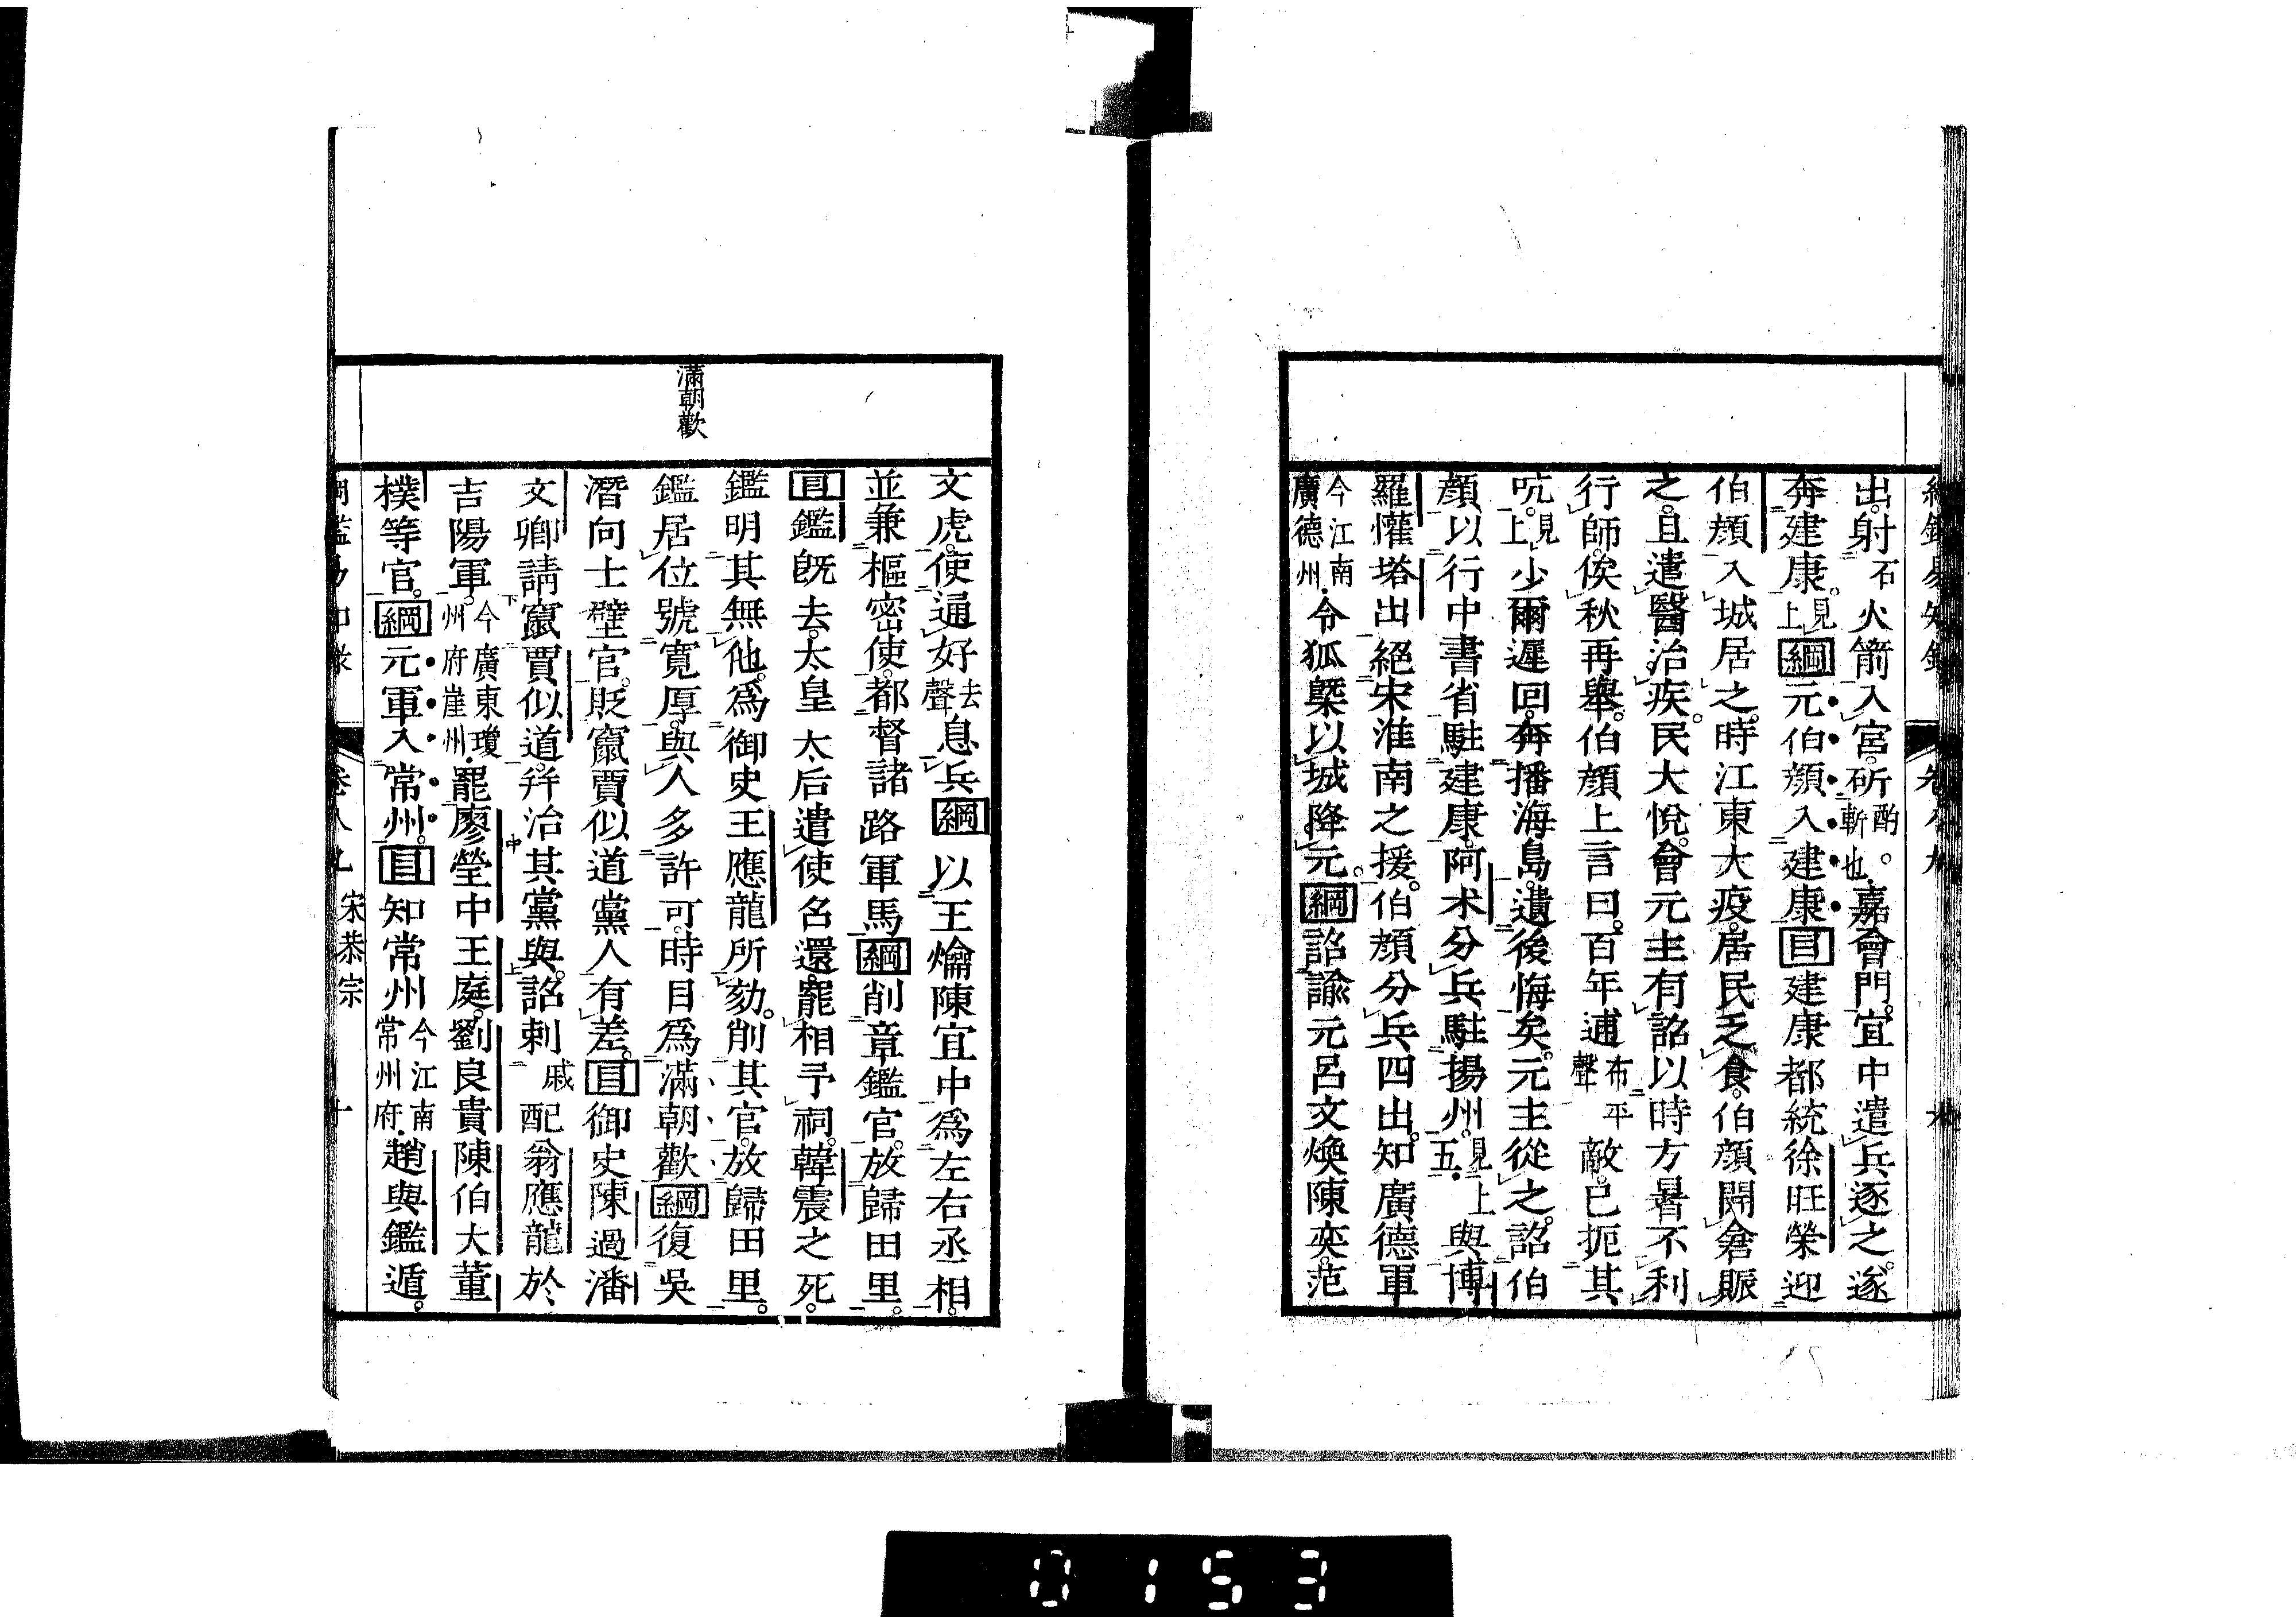 出。射石火箭入宮。斫酌。斬也。嘉會門。宜中遣兵逐之。遂
奔建康。見上綱元伯顏入建康目建康都統徐旺榮迎
伯顏入城居之。時江東大疫。居民乏食。伯顏開倉賑
之。且遣醫治疾。民大悅。會元主有詔以時方暑不利
行師。俟秋再舉。伯顏上言曰。百年逋布平聲敵。已扼其
吭。見上少爾遲回。奔播海島。遺後悔矣。元主從之。詔伯
顏以行中書省駐建康。阿朮分兵駐揚州。見上五與博
羅懽塔出絕宋淮南之援。伯顏分兵四出。知廣德軍
今江南廣德州令狐槩以城降元。綱詔諭元呂文煥陳奕。范
九
滿朝歡
文虎。使通好去聲息兵綱以王爚陳宜中爲左右丞相。
並兼樞密使。都督諸路軍馬綱削章鑑官。放歸田里。
目鑑既去。太皇太后遣使召還。罷相予祠。韓震之死。
鑑明其無他。爲御史王應龍所劾。削其官。放歸田里。
鑑居位號寬厚。與人多許可。時目爲滿朝歡綱復吳
潛向士璧官。貶竄賈似道黨人有差。目御史陳過潘
文卿請竄賈似道。幷治其黨與。詔刺戚配翁應龍於
吉陽軍。今廣東瓊州府崖州罷廖瑩中王庭。劉良貴陳伯大董
樸等官。綱元軍入常州。目知常州今江南常州府趙與鑑遁。
宋恭宗
十
0153